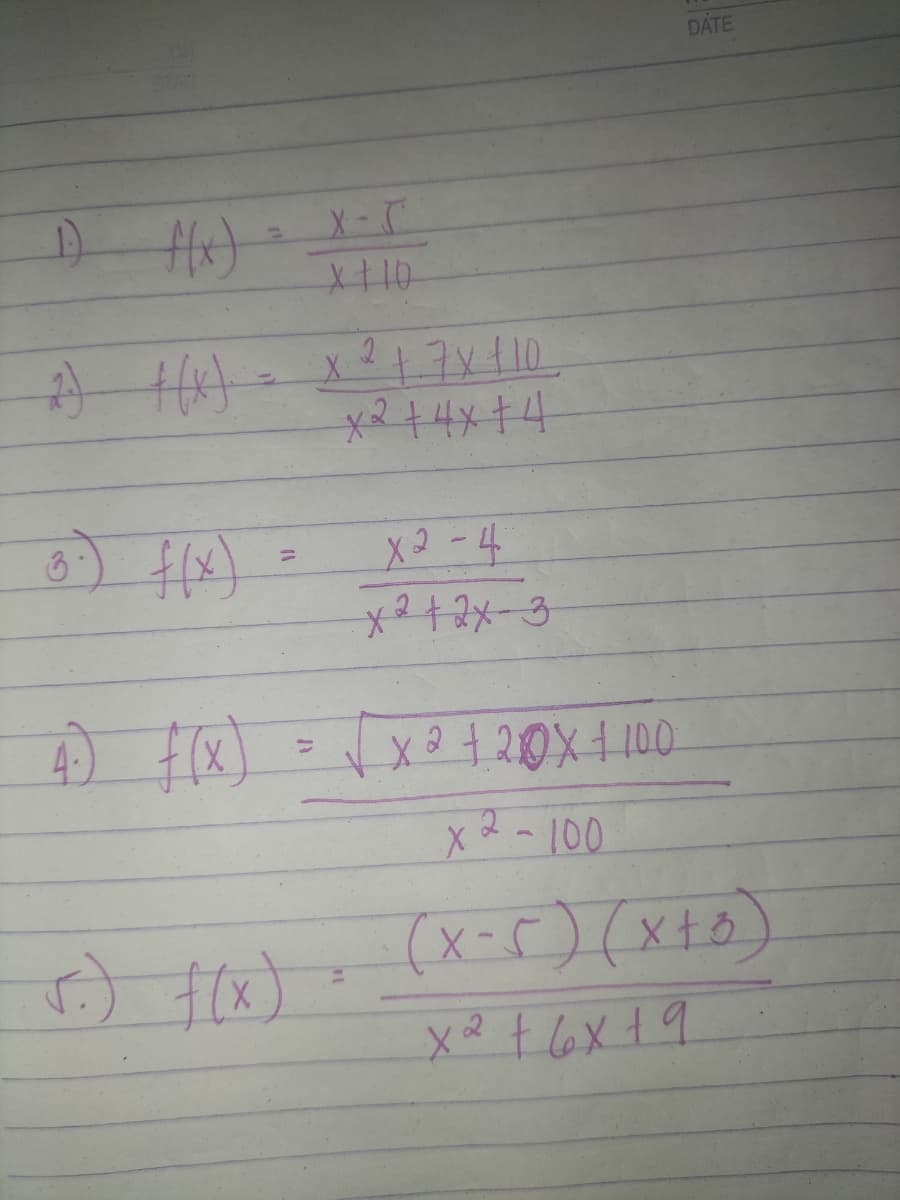 DATE
1.) f(x) = x-5 / x+10
2.) f(x) = x² + 7x +10 / x² + 4x + 4
3.) f(x) = x² - 4 / x² + 2x - 3
4.) f(x) = √x² + 20x + 100 / x² - 100
5.) f(x) = (x-5)(x+3) / x² + 6x + 9